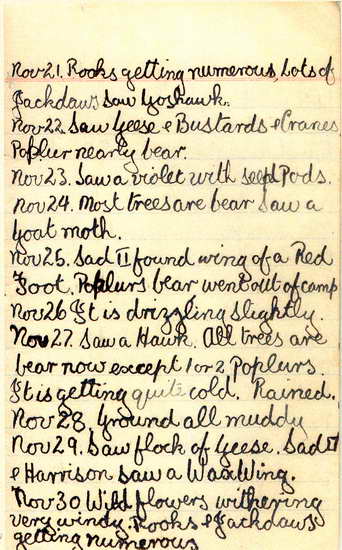 Nov 21. Rooks getting numerous, Lots of
Jackdaws saw Goshawk.
Nov 22. Saw Geese & Bustards & Cranes
Poplur nearly bear.
Nov 23. Saw a violet with seed Pods.
Nov 24. Most trees are bear Saw a
Goat moth.
Nov 25. Sad II found wing of a Red
Foot. Poplurs bear went out of camp
Nov 26 It is drizzling slightly.
Nov 27. Saw a Hawk. All trees are
bear now except 1 or 2 Poplurs.
It is getting quite cold. Rained.
Nov 28. Ground all muddy
Nov 29. Saw flock of Geese. Sad II
& Harrison saw a WaxWing.
Nov 30 Wild flowers withering
very windy. Rooks & Jackdaws
getting numerous